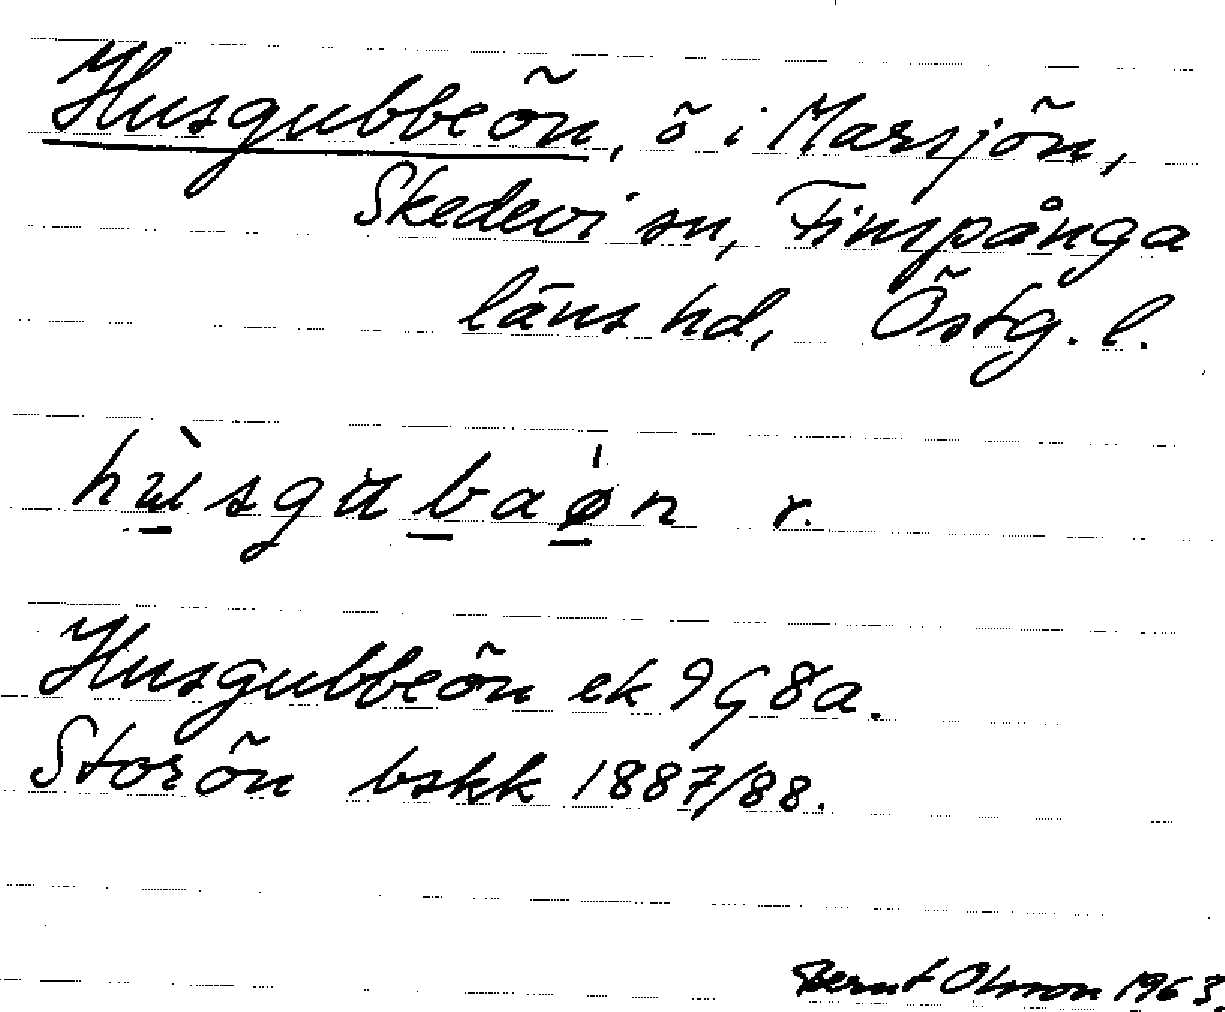 Husgubbeön, ö i Marsjön,
Skedevi sn, Finspånga
läns hd, Östg. l.
hùsgubaøn r.
Husgubbeön ek 9G8a.
Storön bskk 1887/88.
Bernt Olsson 1963.